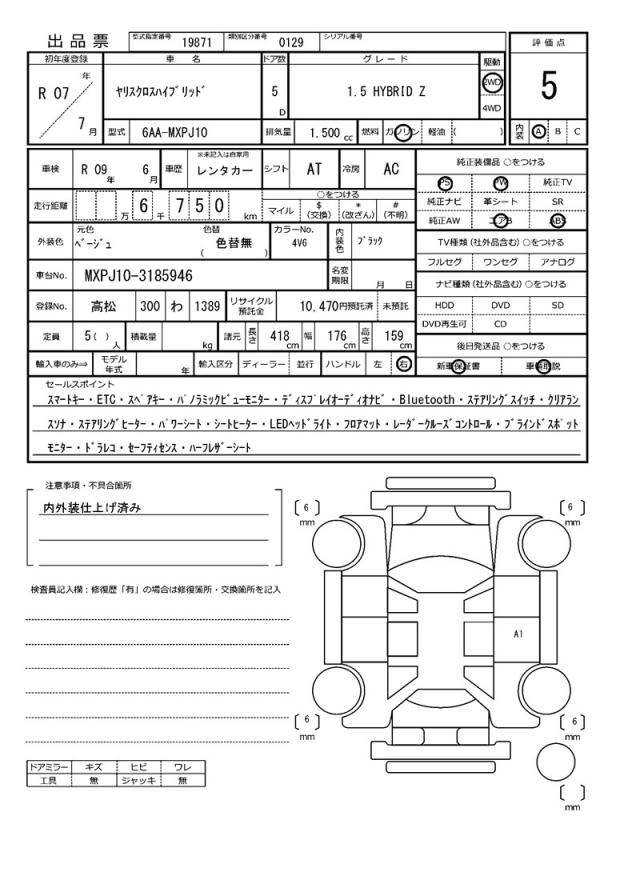 出品票 型式指定番号 19871 類別区分番号 0129 シリアル番号
評価点
5
内装 A B C
初年度登録 車名 ドア数 グレード 駆動
R 07 年 7 月 ヤリスクロスハイブリッド 5 D 1.5 HYBRID Z 2WD
4WD
型式 6AA-MXPJ10 排気量 1.500 cc 燃料 ガソリン 軽油 ( )
車検 R 09 年 6 月 車歴 ※未記入は自家用 レンタカー シフト AT 冷房 AC
走行距離 万 6 千 7 5 0 km ○をつける
マイル $ (交換) * (改ざん) # (不明)
外装色 元色 ベージュ 色替 色替無 ( ) カラーNo. 4V6 内装色 ブラック
車台No. MXPJ10-3185946 名変期限 月 日
登録No. 高松 300 わ 1389 リサイクル預託金 10,470円預託済 未預託
定員 5 ( ) 人 積載量 kg 諸元 長さ 418 cm 幅 176 cm 高さ 159 cm
輸入車のみ⇒ モデル年式 年 輸入区分 ディーラー ・ 並行 ハンドル 左 右
純正装備品 ○をつける
PS PW 純正TV
純正ナビ 革シート SR
純正AW エアB ABS
TV種類 (社外品含む) ○をつける
フルセグ ワンセグ アナログ
ナビ種類 (社外品含む) ○をつける
HDD DVD SD
DVD再生可 CD
後日発送品 ○をつける
新車保証書 車輌取説
セールスポイント
スマートキー・ETC・スペアキー・パノラミックビューモニター・ディスプレイオーディオナビ・Bluetooth・ステアリングスイッチ・クリアラン
スソナ・ステアリングヒーター・パワーシート・シートヒーター・LEDヘッドライト・フロアマット・レーダークルーズコントロール・ブラインドスポット
モニター・ドラレコ・セーフティセンス・ハーフレザーシート
注意事項・不具合箇所
内外装仕上げ済み
検査員記入欄：修復歴「有」の場合は修復箇所・交換箇所を記入
ドアミラー キズ ヒビ ワレ
工具 無 ジャッキ 無
6 mm
6 mm
A1
6 mm
6 mm
mm